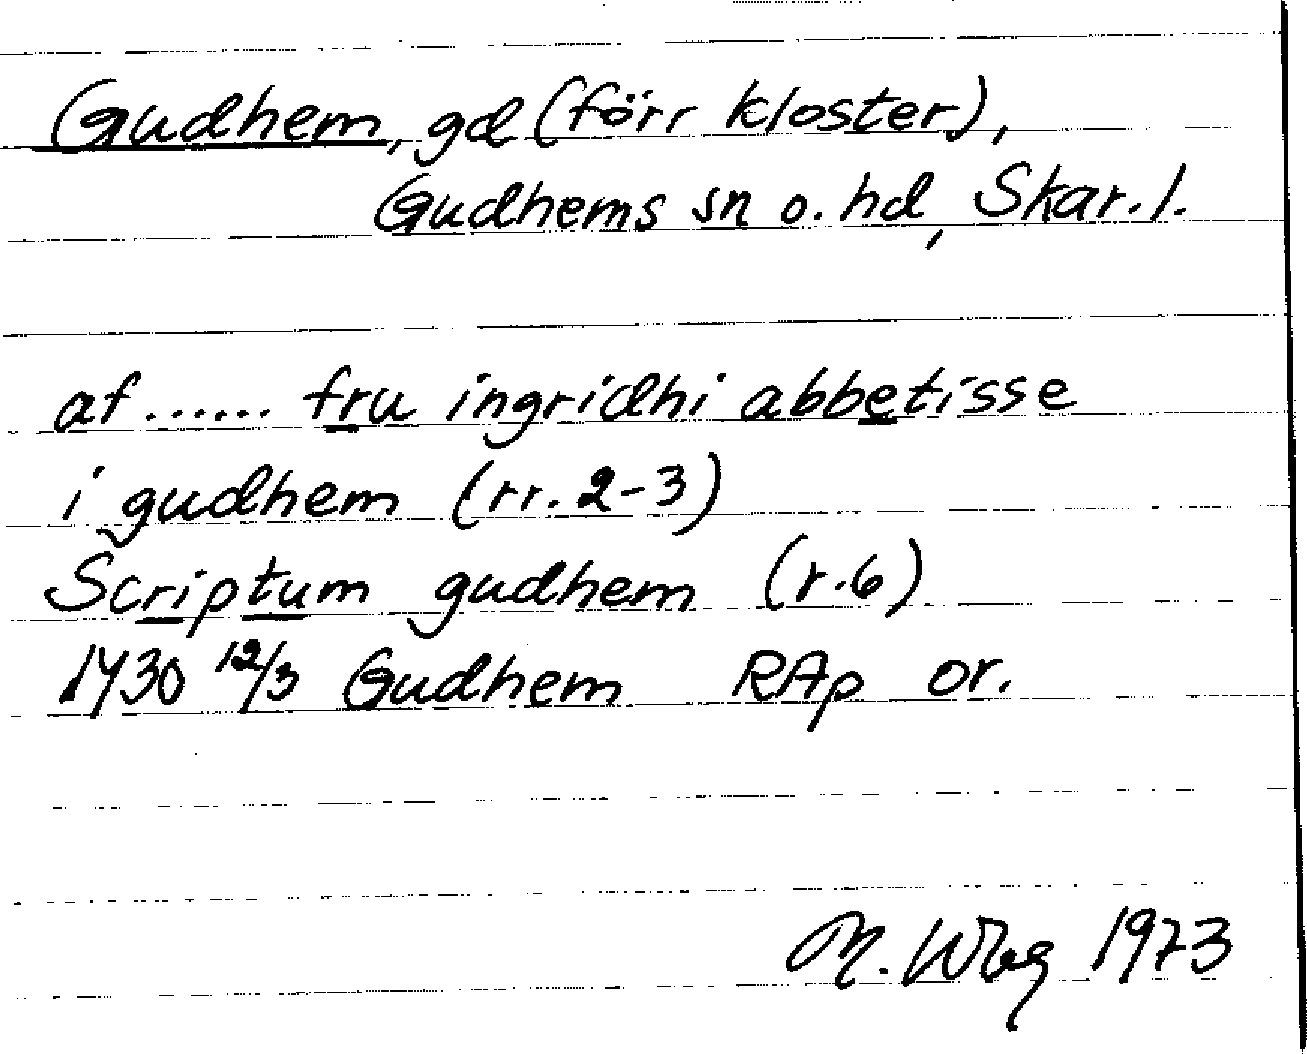 Gudhem, gd (förr kloster),
Gudhems sn o. hd, Skar. l.
af ...... fru ingridhi abbetisse
i gudhem (rr. 2-3)
Scriptum gudhem (r.6)
1430 12/3 Gudhem RAp or.
M. Wbg 1973